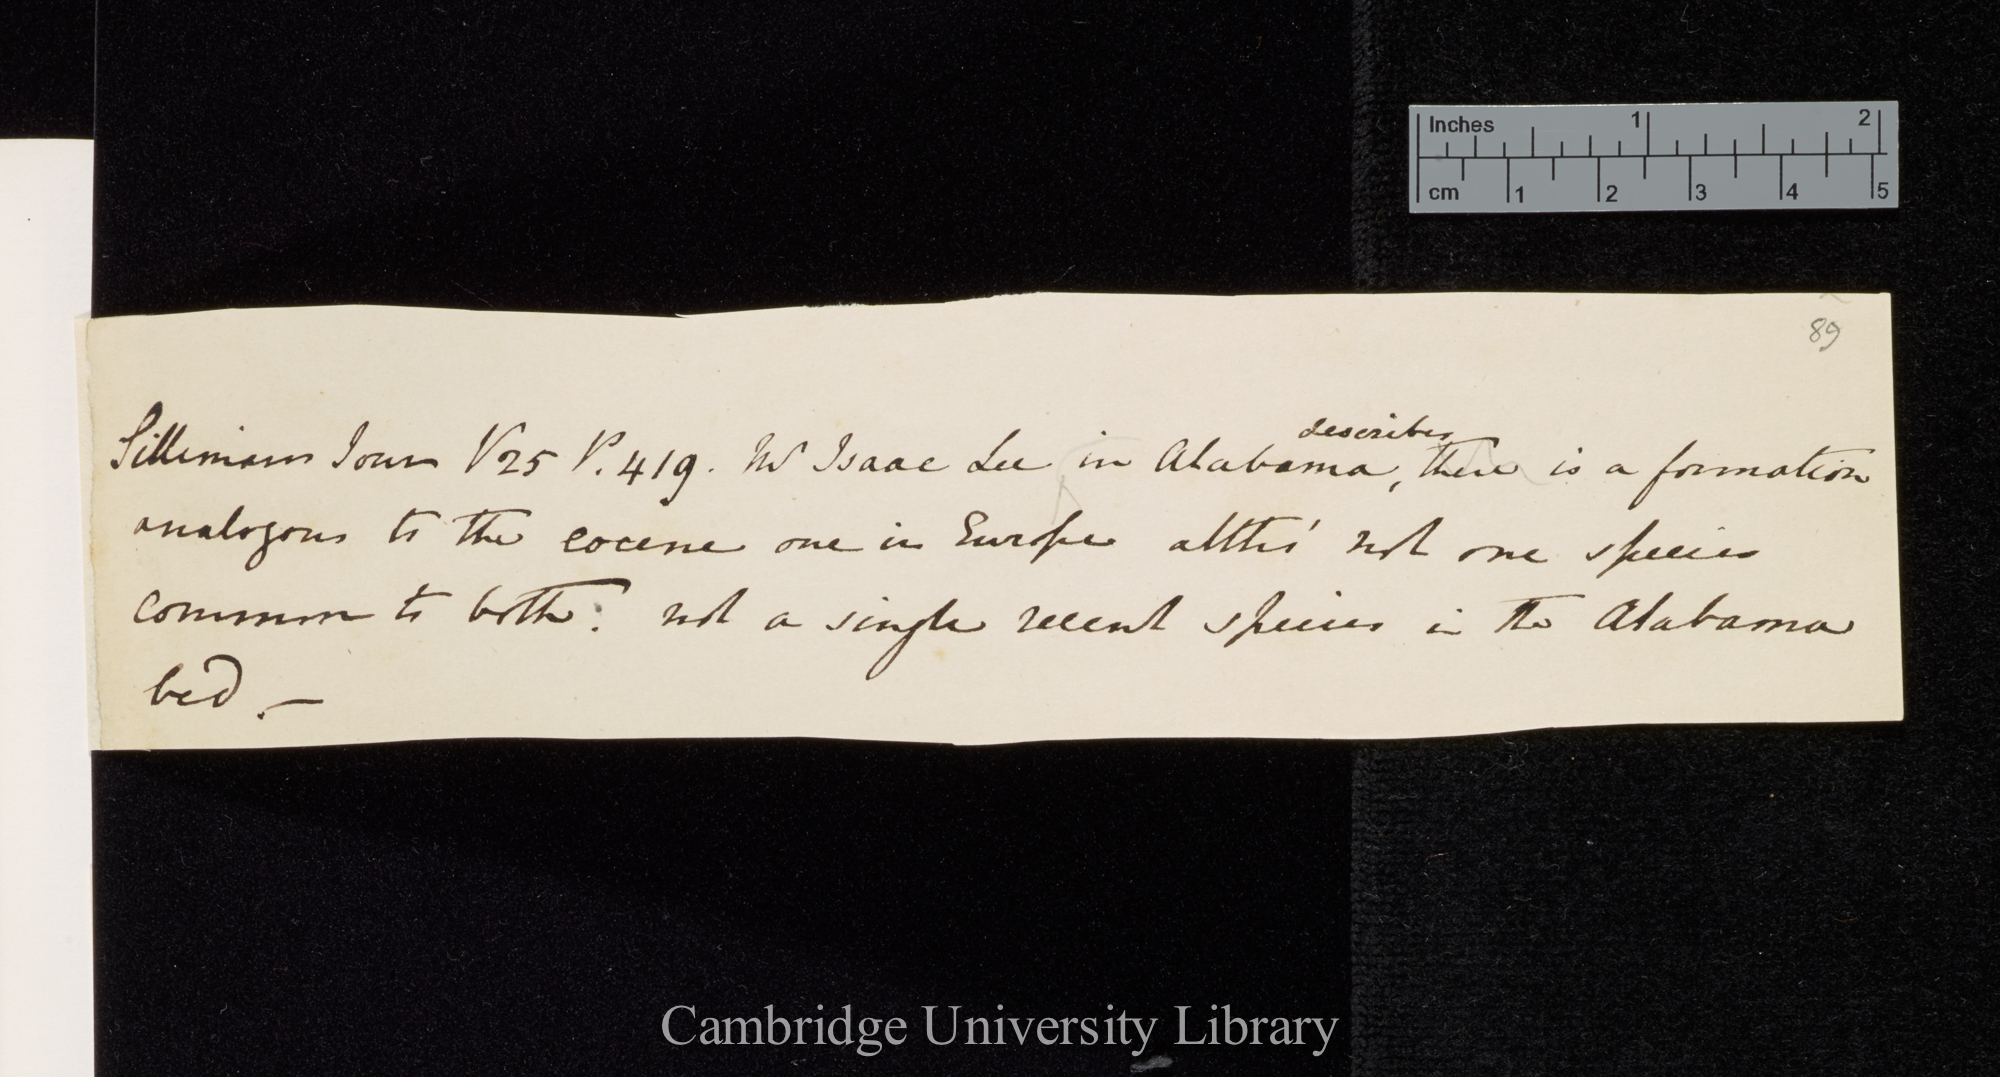 Inches 1 2
cm 1 2 3 4 5
89
describes
Sillimans Journ V 25 P. 419. Mr Isaac Lee in Alabama, there is a formation
analogous to the eocene one in Europe altho' not one species
common to both: not a single recent species in the Alabama
bed. —
Cambridge University Library